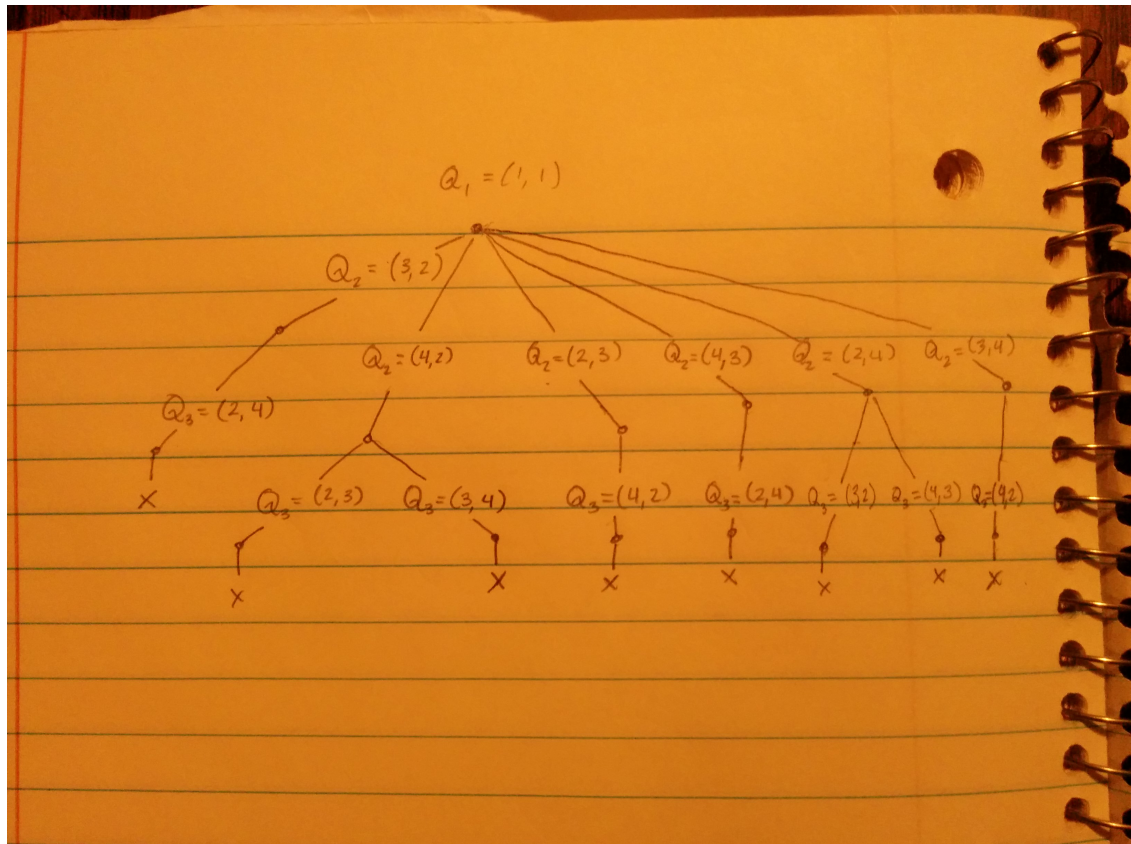 Q₁ = (1, 1)
Q₂ = (3, 2)
Q₂ = (4, 2)
Q₂ = (2, 3)
Q₂ = (4, 3)
Q₂ = (2, 4)
Q₂ = (3, 4)
Q₃ = (2, 4)
Q₃ = (2, 3)
Q₃ = (3, 4)
Q₃ = (4, 2)
Q₃ = (2, 4)
Q₃ = (3, 2)
Q₃ = (4, 3)
= (4, 2)
X
X
X
X
X
X
X
X